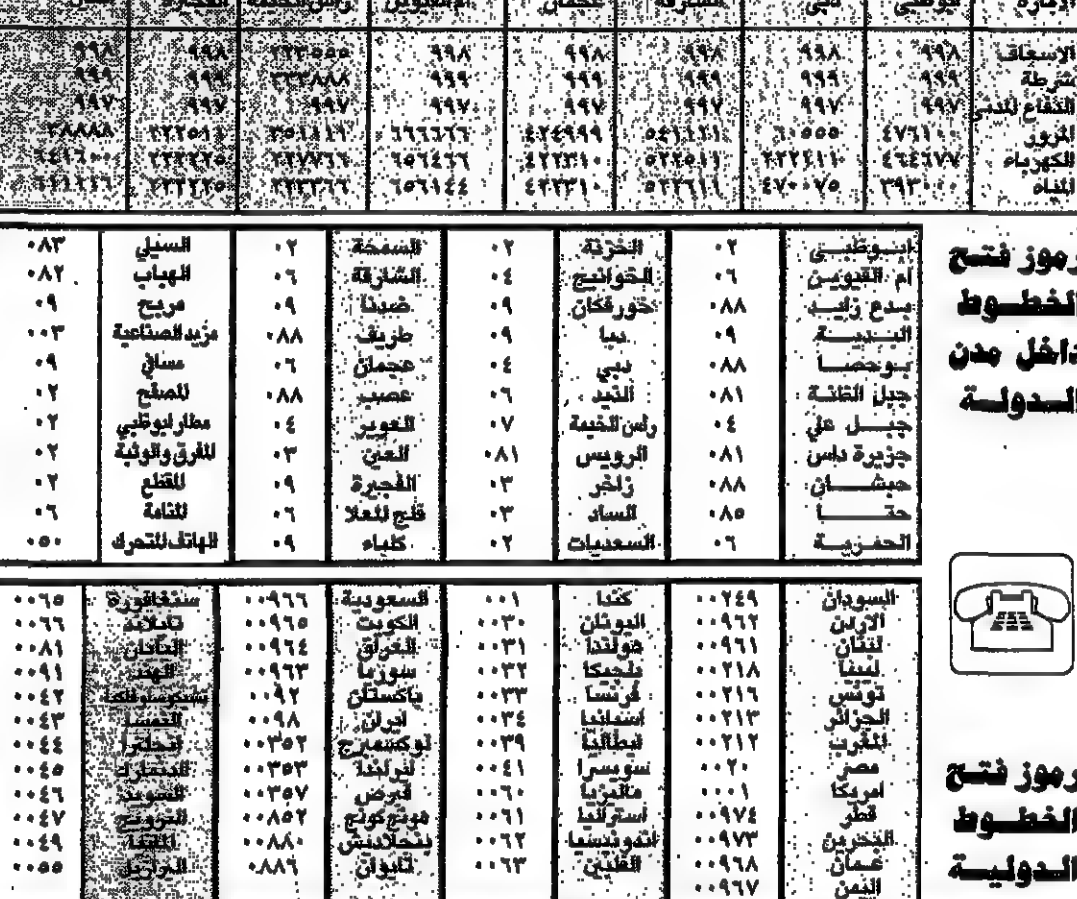 الامارة ابوظبي دبي الشارقة عجمان ام القيوين راس الخيمة الفجيرة
الاسعاف ٩٩٨ ٩٩٨ ٩٩٨ ٩٩٨ ٩٩٨ ٩٩٨ ٩٩٨
شرطة ٩٩٩ ٩٩٩ ٩٩٩ ٩٩٩ ٩٩٩ ٩٩٩ ٩٩٩
الدفاع المدني ٩٩٧ ٩٩٧ ٩٩٧ ٩٩٧ ٩٩٧ ٩٩٧ ٩٩٧ ٩٩٧
المرور ٤٢٤٩٩٩ ٦٩٦٦٦٦
الكهرباء ٤٦٤٦٧٧ ٤٢٢٣١٠ ٦٥٦٤٦٦
المياه ٣٩٣٠٠٠ ٤٧٠٠٧٥ ٥٢٢٦١١ ٤٢٢٣١٠ ٦٥٦١٤٤
رموز فتح
الخطوط
داخل مدن
الدولة
ابوظبي ٠٢ الخزنة ٠٢ السمحة ٠٢ السيلي ٠٨٣
ام القيوين ٠٦ الخوانيج ٠٤ الشارقة ٠٦ الهباب ٠٨٢
بدع زايد ٠٨٨ خورفكان ٠٩ ضدنا ٠٩ مربح ٠٩
البدية ٠٩ دبا ٠٩ طريف ٠٨٨ مزيد الصناعية ٠٠٣
بوحصا ٠٨٨ دبي ٠٤ عجمان ٠٦ مسافي ٠٩
جبل الظنة ٠٨١ الذيد ٠٦ عصب ٠٨٨ المصفح ٠٢
جبل علي ٠٤ رأس الخيمة ٠٧ العوير ٠٤ مطار ابوظبي ٠٢
جزيرة داس ٠٨١ الرويس ٠٨١ العين ٠٣ المفرق والوثبة ٠٢
حبشان ٠٨٨ زاخر ٠٣ الفجيرة ٠٩ المقطع ٠٢
حتا ٠٨٥ الساد ٠٣ فلج المعلا ٠٦ المنامة ٠٦
الحمرية ٠٦ السعديات ٠٢ كلباء ٠٩ الهاتف المتحرك ٠٥٠
رموز فتح
الخطوط
الدولية
السودان ٠٠٢٤٩ كندا ٠٠١ السعودية ٠٠٩٦٦ سنغافورة ٠٠٦٥
الاردن ٠٠٩٦٢ اليونان ٠٠٣٠ الكويت ٠٠٩٦٥ تايلاند ٠٠٦٦
لبنان ٠٠٩٦١ هولندا ٠٠٣١ العراق ٠٠٩٦٤ اليابان ٠٠٨١
ليبيا ٠٠٢١٨ بلجيكا ٠٠٣٢ سوريا ٠٠٩٦٣ الهند ٠٠٩١
تونس ٠٠٢١٦ فرنسا ٠٠٣٣ باكستان ٠٠٩٢ تشيكوسلوفاكيا ٠٠٤٢
الجزائر ٠٠٢١٣ اسبانيا ٠٠٣٤ ايران ٠٠٩٨ النمسا ٠٠٤٣
المغرب ٠٠٢١٢ ايطاليا ٠٠٣٩ لوكسمبرج ٠٠٣٥٢ انجلترا ٠٠٤٤
مصر ٠٠٢٠ سويسرا ٠٠٤١ ايرلندا ٠٠٣٥٣ الدنمارك ٠٠٤٥
امريكا ٠٠٠١ ماليزيا ٠٠٦٠ قبرص ٠٠٣٥٧ السويد ٠٠٤٦
قطر ٠٠٩٧٤ استراليا ٠٠٦١ هونج كونج ٠٠٨٥٢ النرويج ٠٠٤٧
البحرين ٠٠٩٧٣ اندونيسيا ٠٠٦٢ بنجلاديش ٠٠٨٨٠ المانيا ٠٠٤٩
عمان ٠٠٩٦٨ الفلبين ٠٠٦٣ تايوان ٠٨٨٦ البرازيل ٠٠٥٥
اليمن ٠٠٩٦٧